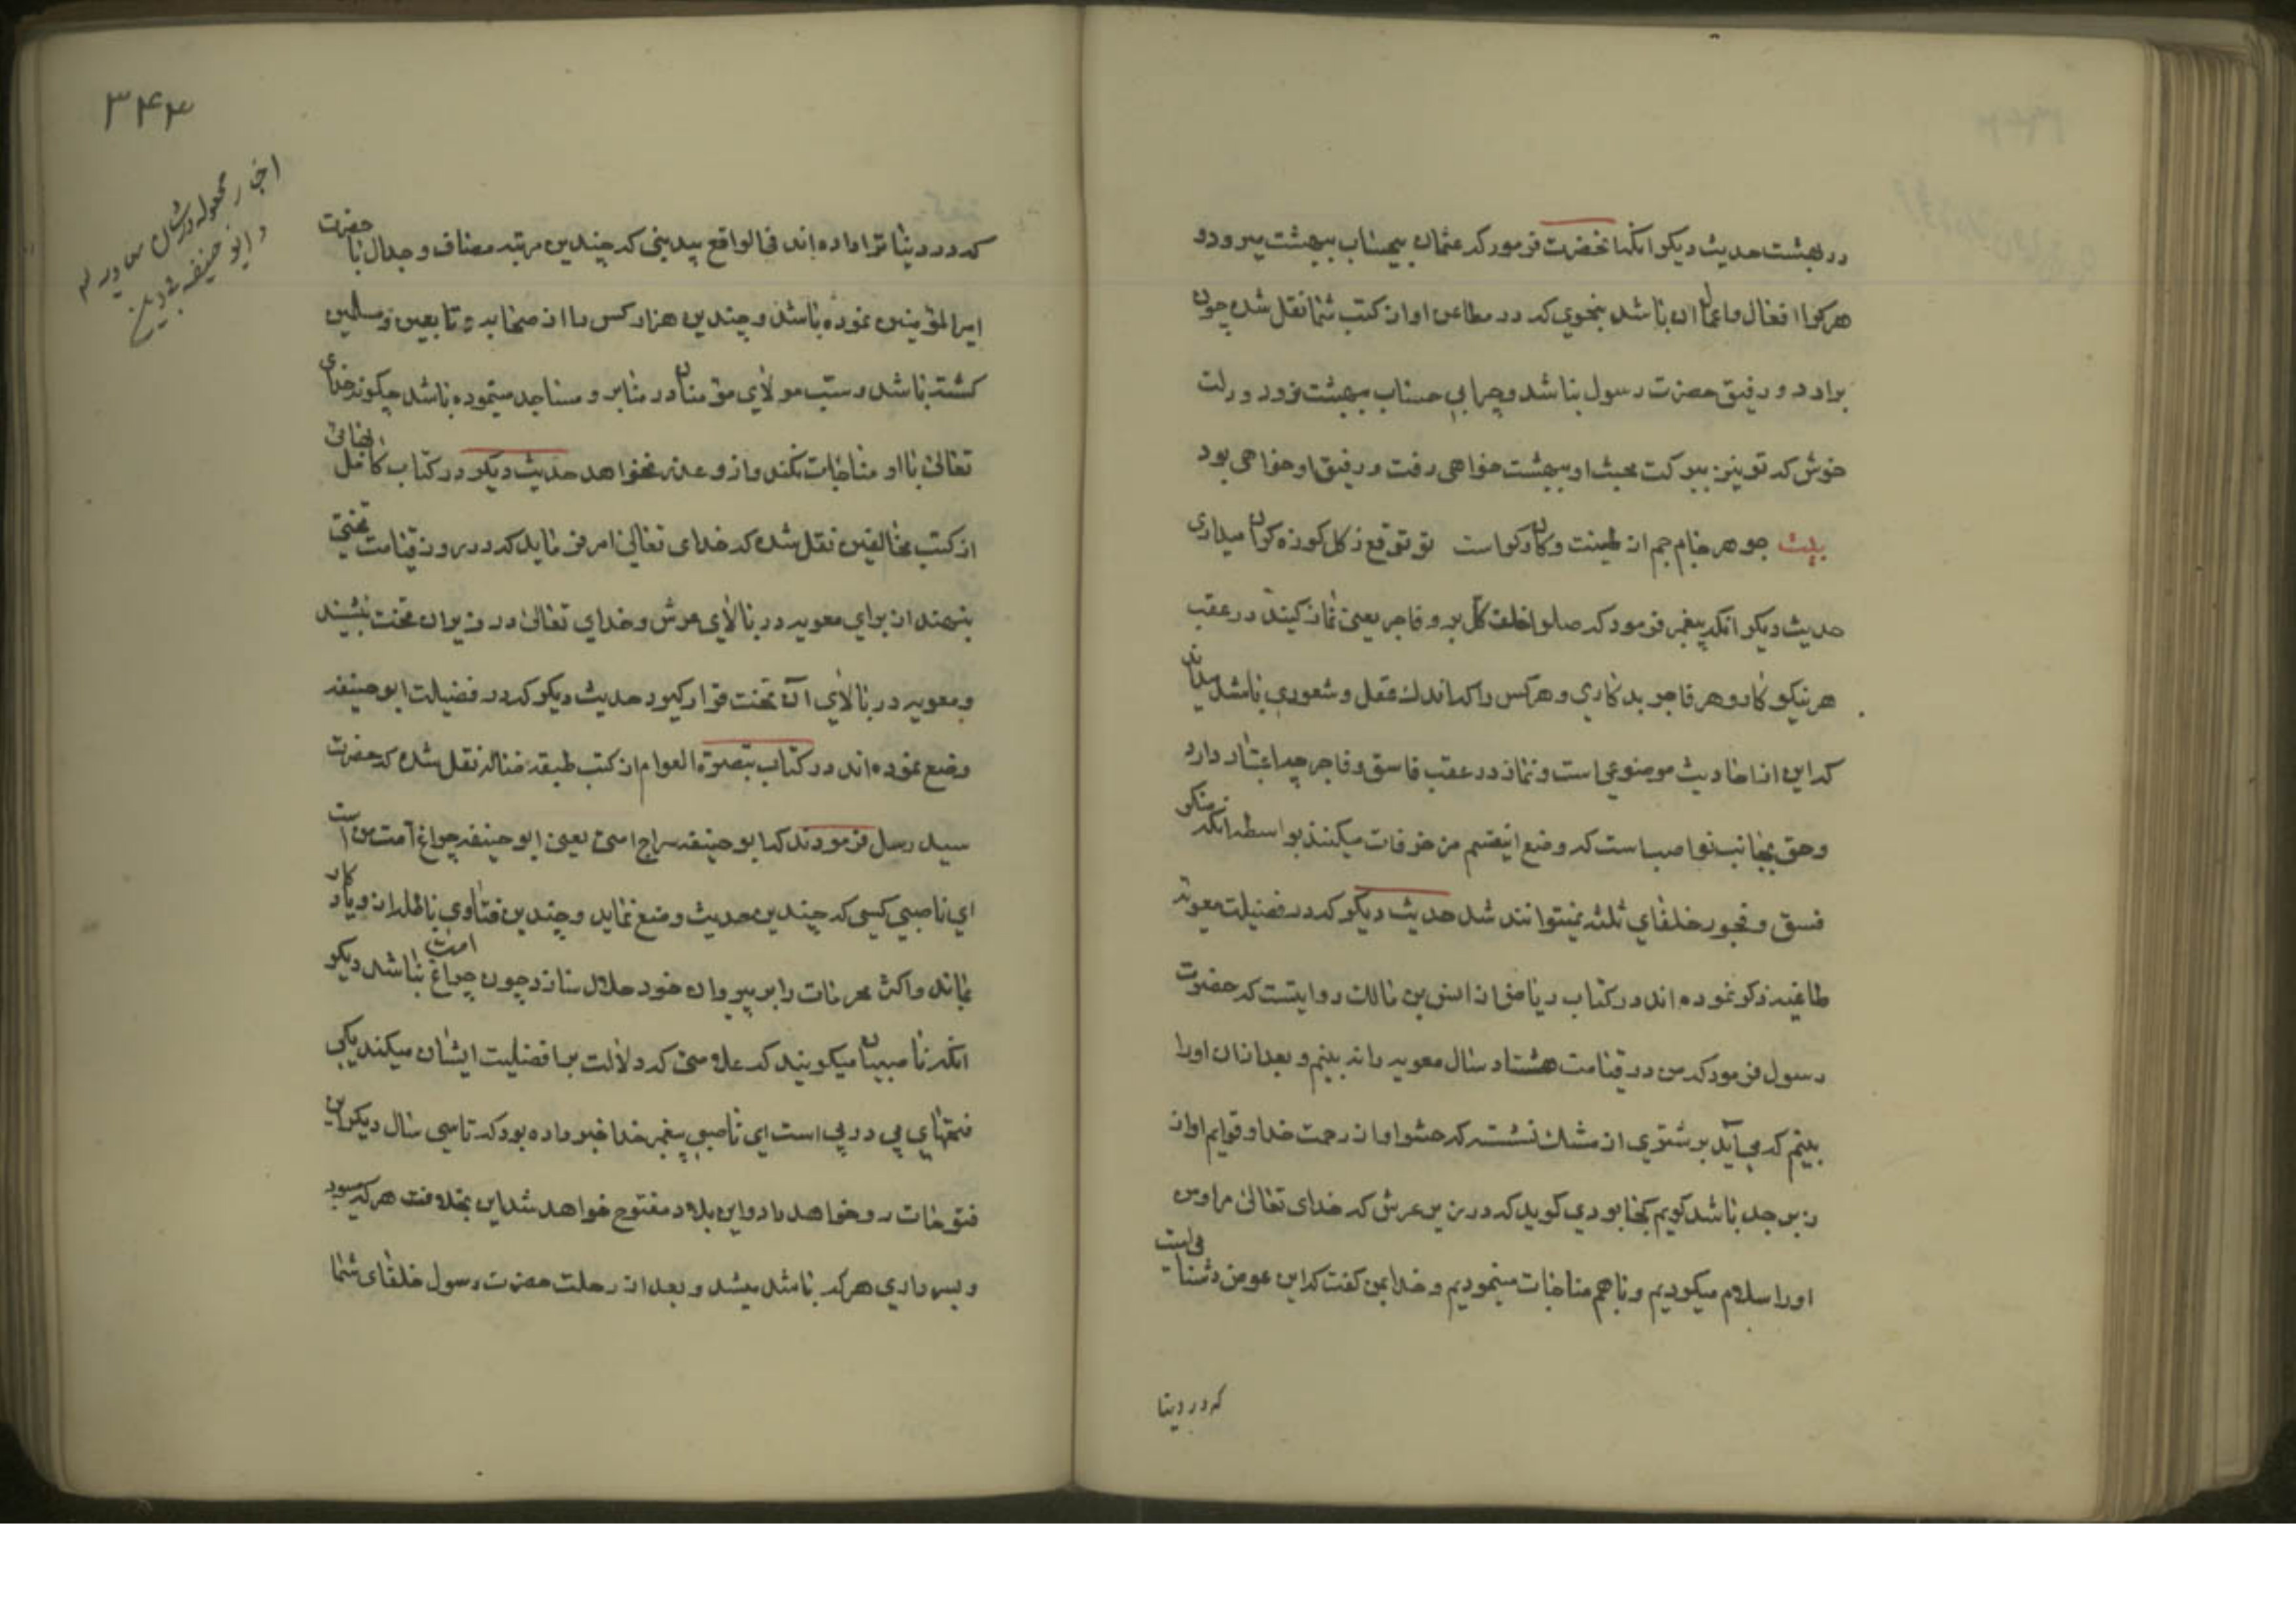 در بهشت حدیث دیگر آنکه آنحضرت فرمود که عثمان بیحساب ببهشت میرود و
هر کرا افعال و اعمال آن باشد بنحوی که در مطاعن او از کتب شما نقل شده چون
برادر و رفیق حضرت رسول باشد و چرا بی حساب ببهشت نرود و دلت
خوش که تو نیز ببرکت محبت او ببهشت خواهی رفت و رفیق او خواهی بود
بیت جوهر جام جم از طینت و کان دگر است تو توقع ز گل کوزه گران میداری
حدیث دیگر آنکه پیغمبر فرمود که صلوا خلف کل بر و فاجر یعنی نماز کنید در عقب
هر نیکو کار و هر فاجر بد کاری و هر کس را که اندک عقل و شعوری باشد میداند
که این از احادیث موضوعی است و نماز در عقب فاسق و فاجر چه اعتبار دارد
و حق بجانب نواصب است که وضع اینقسم مزخرفات میکنند بواسطه آنکه منکر
فسق و فجور خلفای ثلثه نمیتوانند شد حدیث دیگر که در فضیلت معویه
طاغیه ذکر نموده اند در کتاب ریاض از انس بن مالک روایتست که حضرت
رسول فرمود که من در قیامت هشتاد سال معویه را نه بینم و بعد از آن او را
بینم که می آید بر شتری از مشک نشسته که حشو او از رحمت خدا و قوایم او از
زبرجد باشد گویم کجا بودی گوید که در زیر عرش که خدای تعالی مرا و من
او را سلام میکردیم و با هم مناجات مینمودیم و خدا بمن گفت که این عوض دشنامی است
که در دنیا
۳۴۳
اخبار مجعوله در شان معویه
و ابو حنیفه
که در دنیا ترا داده اند فی الواقع به بینی که چندین مرتبه مصاف و جدال با حضرت
امیرالمؤمنین نموده باشد و چندین هزار کس را از صحابه و تابعین و مسلمین
کشته باشد و سب مولای مؤمنان در منابر و مساجد مینموده باشد چگونه خدای
تعالی با او مناجات نکند و از و عذر نخواهد حدیث دیگر در کتاب کامل بهائی
از کتب مخالفین نقل شده که خدای تعالی امر فرماید که در روز قیامت تختی
بنهند از برای معویه در بالای عرش و خدای تعالی در زیر آن تخت نشیند
و معویه در بالای آن تخت قرار گیرد حدیث دیگر که در فضیلت ابو حنیفه
وضع نموده اند در کتاب تبصرة العوام از کتب طبقه ضاله نقل شده که حضرت
سید رسل فرمودند که ابو حنیفه سراج امتی یعنی ابو حنیفه چراغ امت من است
ای ناصبی کسی که چندین حدیث وضع نماید و چندین فتاوی باطله از و یادگار
بماند و اکثر محرمات را بر پیروان خود حلال سازد چون چراغ امت نباشد دیگر
آنکه ناصبیان میگویند که علامتی که دلالت بر افضلیت ایشان میکند یکی
فتحهای پی در پی است ای ناصبی پیغمبر خدا خبر داده بود که تا سی سال دیگر این
فتوحات رو خواهد داد و این بلاد مفتوح خواهد شد این بخلافت هر که میبود
و بسرداری هر که باشد میشد و بعد از رحلت حضرت رسول خلفای شما